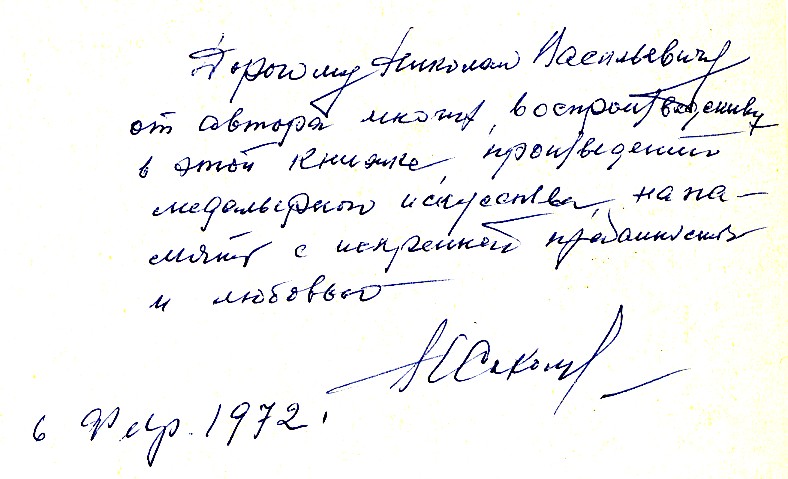 Дорогому Николаю Васильевичу
от автора многих, воспроизведенных
в этой книжке, произведений
медальерного искусства, на па-
мять с искренней преданностью
и любовью
НСоколов
6 Февр. 1972 г.